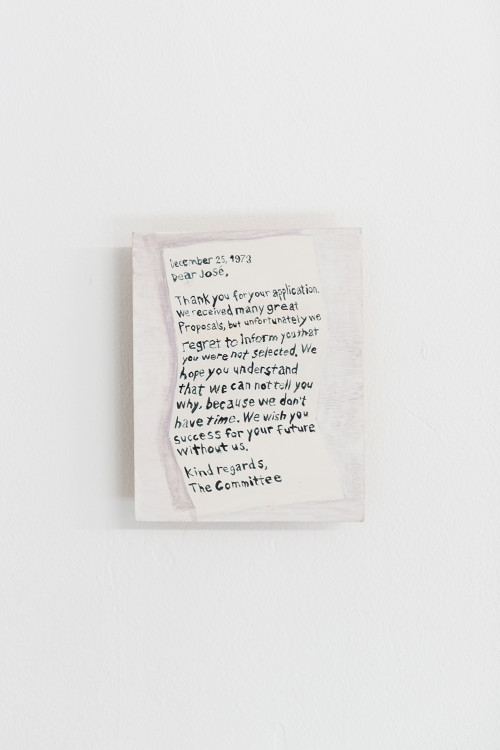 December 25, 1973
Dear José,
Thank you for your application.
We received many great
Proposals, but unfortunately we
regret to inform you that
you were not selected. We
hope you understand
that we can not tell you
why, because we don't
have time. We wish you
success for your future
without us.
Kind regards,
The Committee